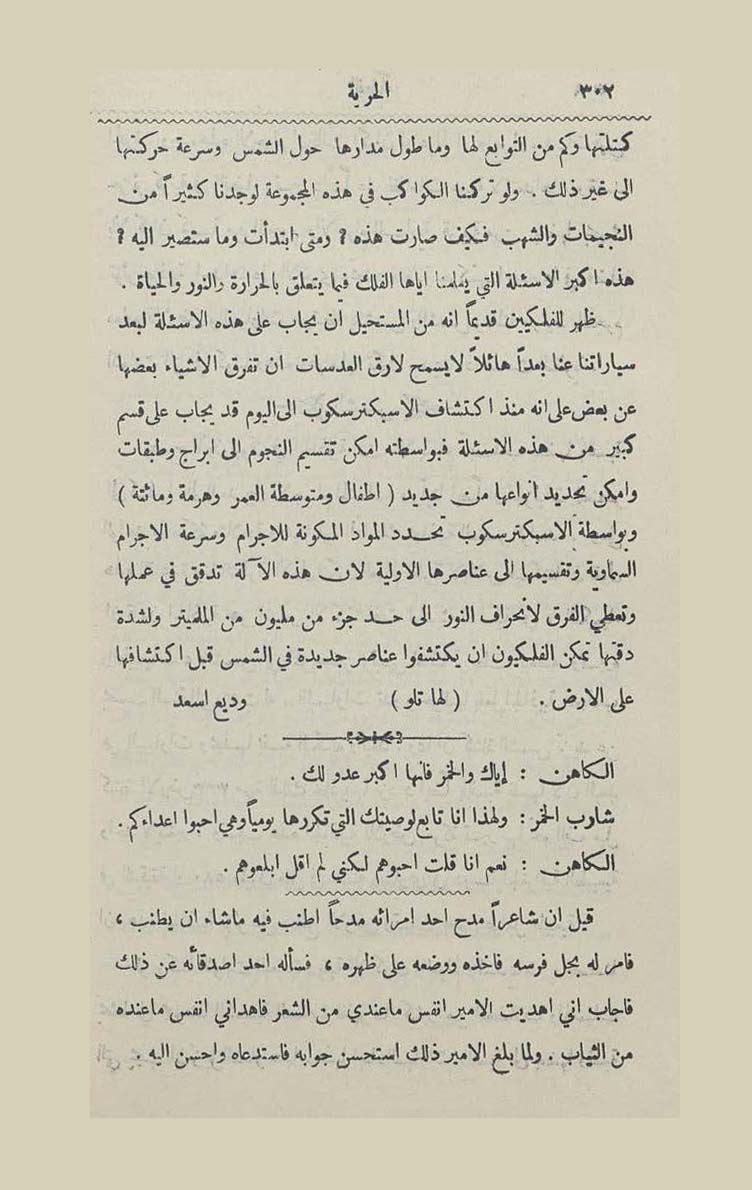 ٣٠٢ الحرية
كتلتها وكم من التوابع لها وما طول مدارها حول الشمس وسرعة حركتها
الى غير ذلك . ولو تركنا الكواكب في هذه المجموعة لوجدنا كثيراً من
النجيمات والشهب فكيف صارت هذه ؟ ومتى ابتدأت وما ستصير اليه ؟
هذه اكبر الاسئلة التي يعلمنا اياها الفلك فيما يتعلق بالحرارة والنور والحياة .
ظهر للفلكيين قديماً انه من المستحيل ان يجاب على هذه الاسئلة لبعد
سياراتنا عنا بعداً هائلاً لايسمح لارق العدسات ان تفرق الاشياء بعضها
عن بعض على انه منذ اكتشاف الاسبكترسكوب الى اليوم قد يجاب على قسم
كبير من هذه الاسئلة فبواسطته امكن تقسيم النجوم الى ابراج وطبقات
وامكن تحديد انواعها من جديد ( اطفال ومتوسطة العمر وهرمة ومائتة )
وبواسطة الاسبكترسكوب تحدد المواد المكونة للاجرام وسرعة الاجرام
السماوية وتقسيمها الى عناصرها الاولية لان هذه الآلة تدقق في عملها
وتعطي الفرق لانحراف النور الى حد جزء من مليون من الملميتر ولشدة
دقتها تمكن الفلكيون ان يكتشفوا عناصر جديدة في الشمس قبل اكتشافها
على الارض . ( لها تلو ) وديع اسعد
الكاهن : إياك والخمر فانها اكبر عدو لك .
شارب الخمر : ولهذا انا تابع لوصيتك التي تكررها يومياً وهي احبوا اعداءكم .
الكاهن : نعم انا قلت احبوهم لكني لم اقل ابلعوهم .
قيل ان شاعراً مدح احد امرائه مدحاً اطنب فيه ماشاء ان يطنب ،
فامر له بجل فرسه فاخذه ووضعه على ظهره ، فسأله احد اصدقائه عن ذلك
فاجاب اني اهديت الامير انفس ماعندي من الشعر فاهداني انفس ماعنده
من الثياب . ولما بلغ الامير ذلك استحسن جوابه فاستدعاه واحسن اليه .